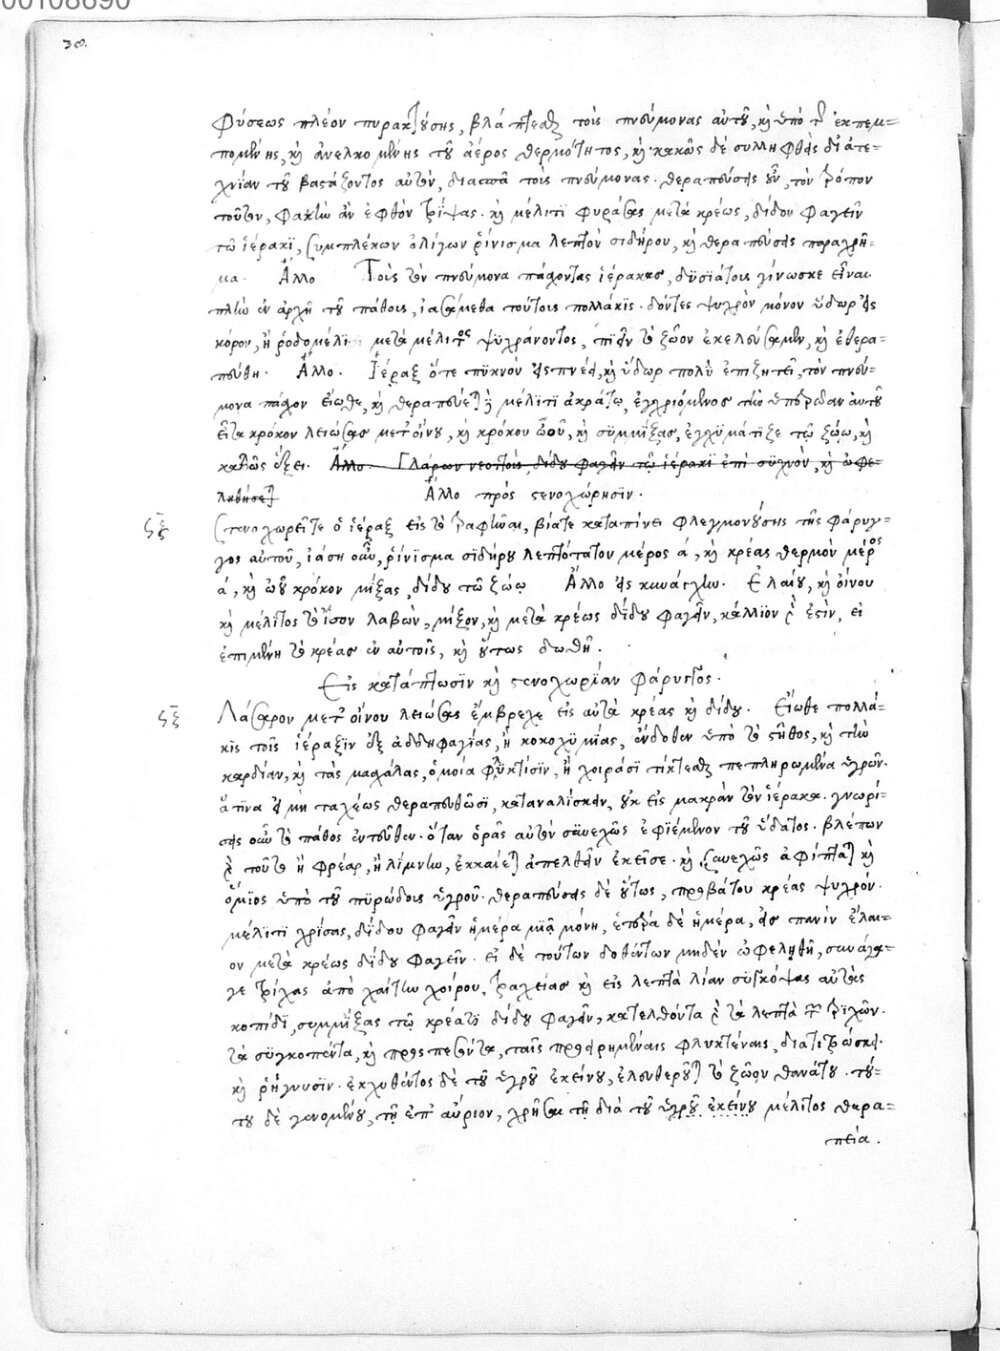 00108690
φύσεως πλέον πυρακτούσης, βλάπτεσθαι τοὺς πνεύμονας αὐτοῦ, καὶ ὑπὸ τῆς ἐκπεμ=
πομένης, καὶ ἀνελκομένης τοῦ ἀέρος θερμότητος, καὶ κακῶς δὲ συλληφθεὶς δι' ἀτε=
χνίαν τοῦ βαστάζοντος αὐτὸν, διασπᾶ τοὺς πνεύμονας. θεραπεύσεις οὖν, τὸν τρόπον
τοῦτον, φακὴν ἂν ἑφθὸν τρίψας. καὶ μέλιτι φυράσας μετὰ κρέως, δίδου φαγεῖν
τῶ ἱέρακι, συμπλέκων ὀλίγον ῥίνισμα λεπτὸν σιδήρου, καὶ θεραπεύσεις παραχρῆ=
μα. Ἄλλο Τοὺς τὸν πνεύμονα πάσχοντας ἱέρακας, δυσιάτους γίνωσκε εἶναι
πλὴν ἐν ἀρχῇ τοῦ πάθους, ἰασάμεθα τούτους πολλάκις. δόντες ψυχρὸν μόνον ὕδωρ εἰς
κόρον, ἢ ῥοδόμελι μετὰ μέλιτος ψυχράναντος, πιεῖν τὸ ζῶον ἐκελεύσαμεν, καὶ ἐθερα=
πεύθη. Ἄλλο. Ἱέραξ ὅτε πυκνὸν εἰσπνέει, καὶ ὕδωρ πολὺ ἐπιζητεῖ, τὸν πνεύ=
μονα πάσχειν εἴωθε, καὶ θεραπεύεται μέλιτι ἀκράτῳ, ἐγχριόμενος τὴν ὑπερώαν αὐτοῦ
εἶτα κρόκον λειώσας μετ' οἴνου, καὶ κρόκου ὠοῦ, καὶ συμμίξας, ἐγχυμάτιζε τῷ ζώῳ, καὶ
καλῶς ἕξει. Ἄλλο. Γλάρων νεοττοὺς, δίδου φαγεῖν τῷ ἱέρακι ἐπὶ συχνὸν, καὶ ὠφε=
ληθήσεται Ἄλλο πρὸς στενοχώρησιν.
ςξ Στενοχωρεῖται ὁ ἱέραξ εἰς τὸ τραφῆναι, βίᾳ τε καταπίνει φλεγμονούσης τῆς φάρυγ=
γος αὐτοῦ, ἰάση οὖν, ῥίνισμα σιδήρου λεπτότατον μέρος ά, καὶ κρέας θερμὸν μέρος
ά, καὶ ὠοῦ κρόκον μίξας, δίδου τῶ ζώῳ Ἄλλο εἰς κυνάγχην. Ἐλαίου, καὶ οἴνου
καὶ μέλιτος τὸ ἴσον λαβὼν, μίξον, καὶ μετὰ κρέως δίδου φαγεῖν, κάλλιον γὰρ ἐστὶν, εἰ
ἐπιμένῃ τὸ κρέας ἐν αὐτοῖς, καὶ οὕτως δωθῇ.
Εἰς κατάπτωσιν καὶ στενοχωρίαν φάρυγγος.
ςξ Λάσαρον μετ' οἴνου λειώσας ἔμβρεχε εἰς αὐτὰ κρέας καὶ δίδου. Εἴωθε πολλά=
κις τοῖς ἱέραξιν ἐξ ἀδδηφαγίας, ἢ κοκοχυμίας, ἔνδοθεν ὑπὸ τὸ στῆθος, καὶ τὴν
καρδίαν, καὶ τὰς μασχάλας, ὁμοία φλυκτίσιν, ἢ χοιράσι τίκτεσθαι πεπληρωμένα ὑγρῶν.
ἅτινα εἰ μὴ ταχέως θεραπευθῶσι, καταναλίσκειν, οὐκ εἰς μακρὰν τὸν ἱέρακα. γνωρί=
σεις οὖν τὸ πάθος ἐντεῦθεν. ὅταν ὁρᾷς αὐτὸν συνεχῶς ἐφιέμενον τοῦ ὕδατος. βλέπων
γὰρ τοῦτο ἢ φρέαρ, ἢ λίμνην, ἐκκαίεται ἀπελθεῖν ἐκεῖσε. καὶ συνεχῶς ἀφίπταται καὶ
ὅμοιος ὑπὸ τοῦ πυρώδους ὑγροῦ. θεραπεύσεις δὲ οὕτως, προβάτου κρέας ψυχρόν.
μέλιτι χρίσας, δίδου φαγεῖν ἡμέρα μιᾷ μόνῃ, ἑτέρα δὲ ἡμέρα, εἰς πανὶν ἔλαι=
ον μετὰ κρέως δίδου φαγεῖν. εἰ δὲ τούτων δοθέντων μηδὲν ὠφεληθῇ, συνάγα=
γε τρίχας ἀπὸ χαίτην χοίρου, τραχείας καὶ εἰς λεπτὰ λίαν συγκόψας αὐτὰς
κοπίδι, συμμίξας τῷ κρέατι δίδου φαγεῖν, κατελθόντα γὰρ τὰ λεπτὰ τῶν τριχῶν.
τὰ συγκοπέντα, καὶ προσπεσόντα, ταῖς προειρημέναις φλυκταίναις, διατιτρώσκει.
καὶ ῥήγνυσιν. ἐκχυθέντος δὲ τοῦ ὑγροῦ ἐκείνου, ἐλευθεροῦται τὸ ζῶον θανάτου. τού=
του δὲ γενομένου, τῇ ἐπ' αὔριον, χρῆσαι τῇ διὰ τοῦ ὑγροῦ ἐκείνου μέλιτος θερα=
πεία.